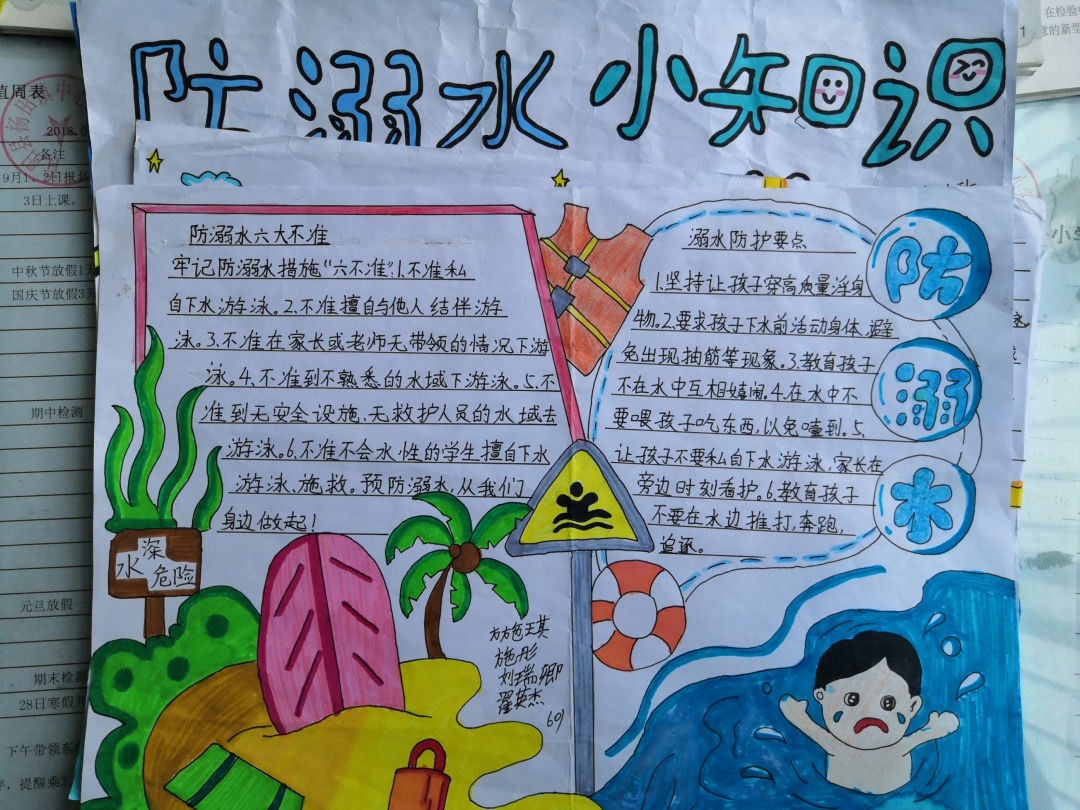 防溺水小知识
防溺水六大不准
牢记防溺水措施“六不准”1.不准私
自下水游泳。2.不准擅自与他人结伴游
泳。3.不准在家长或老师无带领的情况下游
泳。4.不准到不熟悉的水域下游泳。5.不
准到无安全设施、无救护人员的水域去
游泳。6.不准不会水性的学生擅自下水
游泳、施救。预防溺水,从我们
身边做起!
溺水防护要点
1.坚持让孩子穿高质量浮身
物。2.要求孩子下水前活动身体,避
免出现抽筋等现象。3.教育孩子
不在水中互相嬉闹。4.在水中不
要喂孩子吃东西,以免噎到。5.
让孩子不要私自下水游泳,家长在
旁边时刻看护。6.教育孩子
不要在水边推打,奔跑,
追逐。
防
溺
水
水深
危险
施彤
刘瑞卿
翟英杰
601
值周表
2018.0
备注
3日上课。
中秋节放假1天
国庆节放假3天
期中检测
元旦放假
期末检测
28日寒假
下午带领东
提醒乘3
在检验
的新型
1
小学